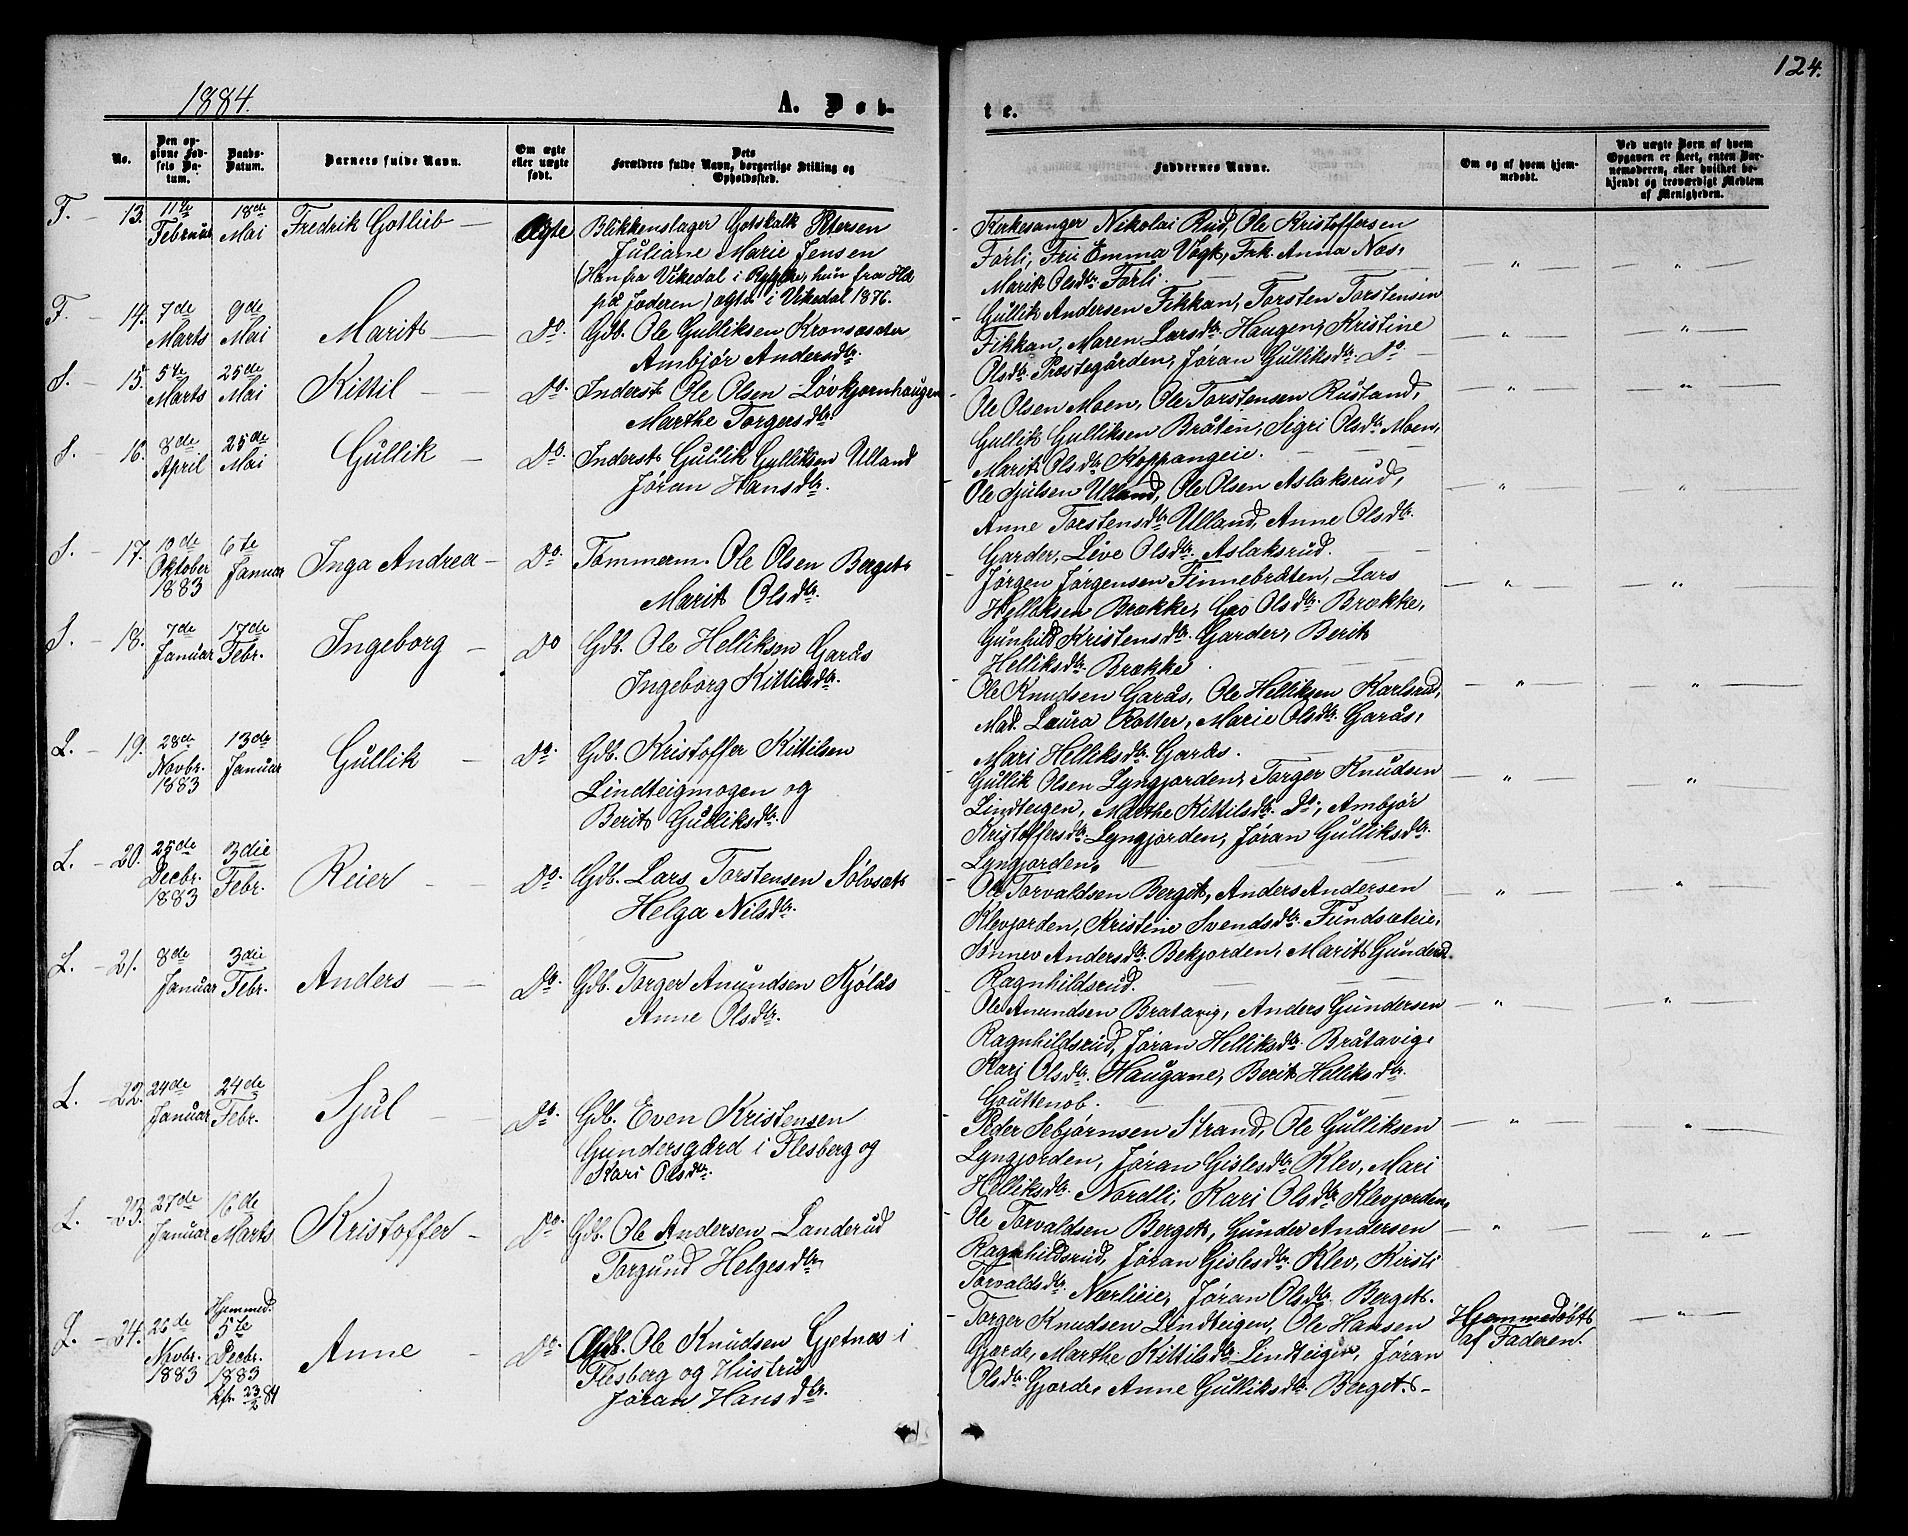 1884.
A. Døb-
te.
124.
No.
Den op-
givne Fød-
sels Da-
tum.
Daabs-
Datum.
Barnets fulde Navn.
Om ægte
eller uægte
født.
Dets
Forældres fulde Navn, borgerlige Stilling og
Opholdssted.
Faddernes Navne.
Om og af hvem hjem-
medøbt.
Ved uægte Børn af hvem
Opgaven er skeet, enten Bar-
nemoderen, eller hvilket be-
kjendt og troværdigt Medlem
af Menigheden.
F. - 13. 11te Februar 18de Mai Fredrik Gotlieb - Ægte
Blikkenslager Gotskalk Petersen
Juliane Marie Jensen
(Han fra Vikedal i Ryfylke, hun fra Haa
på Jæderen) ægtev. i Vikedal 1876.
- Kirkesanger Nikolai Rud, Ole Kristoffersen
Førli, Fru Emma Vogt, Frk. Anna Næs,
Marit Olsdtr. Førli. - " - - " -
F. - 14. 7de Marts 9de Mai Marit - Do.
Gdb. Ole Gulliksen Kronsæder
Ambjør Andersdtr.
- Gullik Andersen Fikkan, Torsten Torstensen
Fikkan, Maren Larsdtr. Haugen, Kristine
Olsdtr. Præstegården, Jøran Gulliksdtr. Do - - " - - " -
S. - 15. 5te Marts 25de Mai Kittil - - Do.
Inderst Ole Olsen Løvkjernhaugen
Marthe Torgersdtr.
- Ole Olsen Moen, Ole Torstensen Rustand,
Gullik Gulliksen Bråten, Sigri Olsdtr. Moen,
Marit Olsdtr. Koppangeie. - " - - " -
S. - 16. 8de April 25de Mai Gullik - Do.
Inderst Gullik Gulliksen Ulland
Jøran Hansdtr.
- Ole Sjulsen Ulland, Ole Olsen Aslaksrud,
Anne Torstensdtr. Ulland, Anne Olsdtr.
Garder, Live Olsdtr. Aslaksrud. - " - - " -
S. - 17. 10de Oktober 1883 6te Januar Inga Andrea - Do.
Tømmerm. Ole Olsen Berget
Marit Olsdtr.
- Jørgen Jørgensen Finnebråten, Lars
Helliksen Brække, Gro Olsdtr. Brække,
Gunhild Kristensdtr. Garder, Berit
Helliksdtr. Brække. - " - - " -
S. - 18. 7de Januar 17de Febr. Ingeborg - Do
Gdb. Ole Helliksen Garås
Ingeborg Kittilsdtr.
- Ole Knudsen Garås, Ole Helliksen Karlsrud,
Mad. Laura Rotter, Marie Olsdtr. Garås,
Mari Helliksdtr. Garås. - " - - " -
L. - 19. 28de Novbr. 1883 13de Januar Gullik - Do.
Gdb. Kristoffer Kittilsen
Lindteigmogen og
Berit Gulliksdtr.
- Gullik Olsen Lyngjorden, Torger Knudsen
Lindteigen, Marthe Kittilsdtr. Do, Ambjør
Kristoffersdtr. Lyngjorden, Jøran Gulliksdtr.
Lyngjorden. - " - - " -
L. - 20. 25de Decbr. 1883 3die Febr. Reier - - Do.
Gdb. Lars Torstensen Sølvsæt
Helga Nilsdtr.
- Ole Torvaldsen Berget, Anders Andersen
Klevjorden, Kristine Svendsdtr. Fundsæteie,
Sønnev Andersdtr. Bekjorden, Marit Gundersd.
Ragnhildsrud. - " - - " -
L. - 21. 8de Januar 3die Febr. Anders - - Do.
Gdb. Torger Amundsen Kjølås
Anne Olsdtr.
- Ole Amundsen Bratavig, Anders Gundersen
Ragnhildsrud, Jøran Helliksdtr. Bråtavig,
Kari Olsdtr. Haugane, Berit Helliksdtr.
Gouttenob. - " - - " -
L. - 22. 24de Januar 24de Febr. Sjul - Do.
Gdb. Even Kristensen
Gundersgård i Flesberg og
Kari Olsdtr.
- Peder Sebjørnsen Strand, Ole Gulliksen
Lyngjorden, Jøran Gislesdtr. Klev, Mari
Helliksdtr. Nordli, Kari Olsdtr. Klevjorden, - " - - " -
L. - 23. 27de Januar 16de Marts Kristoffer - Do.
Gdb. Ole Andersen Landerud
Torgund Helgesdtr.
- Ole Torvaldsen Berget, Gunder Andersen
Ragnhildsrud, Jøran Gislesdtr. Klev, Kirsti
Torvaldsdtr. Nærlieie, Jøran Olsdtr. Berget. - " - - " -
L. - 24. 26de Novbr. 1883 Hjemmed. 5te Decbr. 1883 kfr. 23/2 84 Anne - Do.
Gdb. Ole Knudsen Gjetnæs i
Flesberg og Hustru
Jøran Hansdtr.
- Torger Knudsen Lindteigen, Ole Hansen
Gjerde, Marthe Kittilsdtr. Lindteigen, Jøran
Olsdtr. Gjerde, Anne Gulliksdtr. Berget. -
Hjemmedøbt
af Faderen. - " -